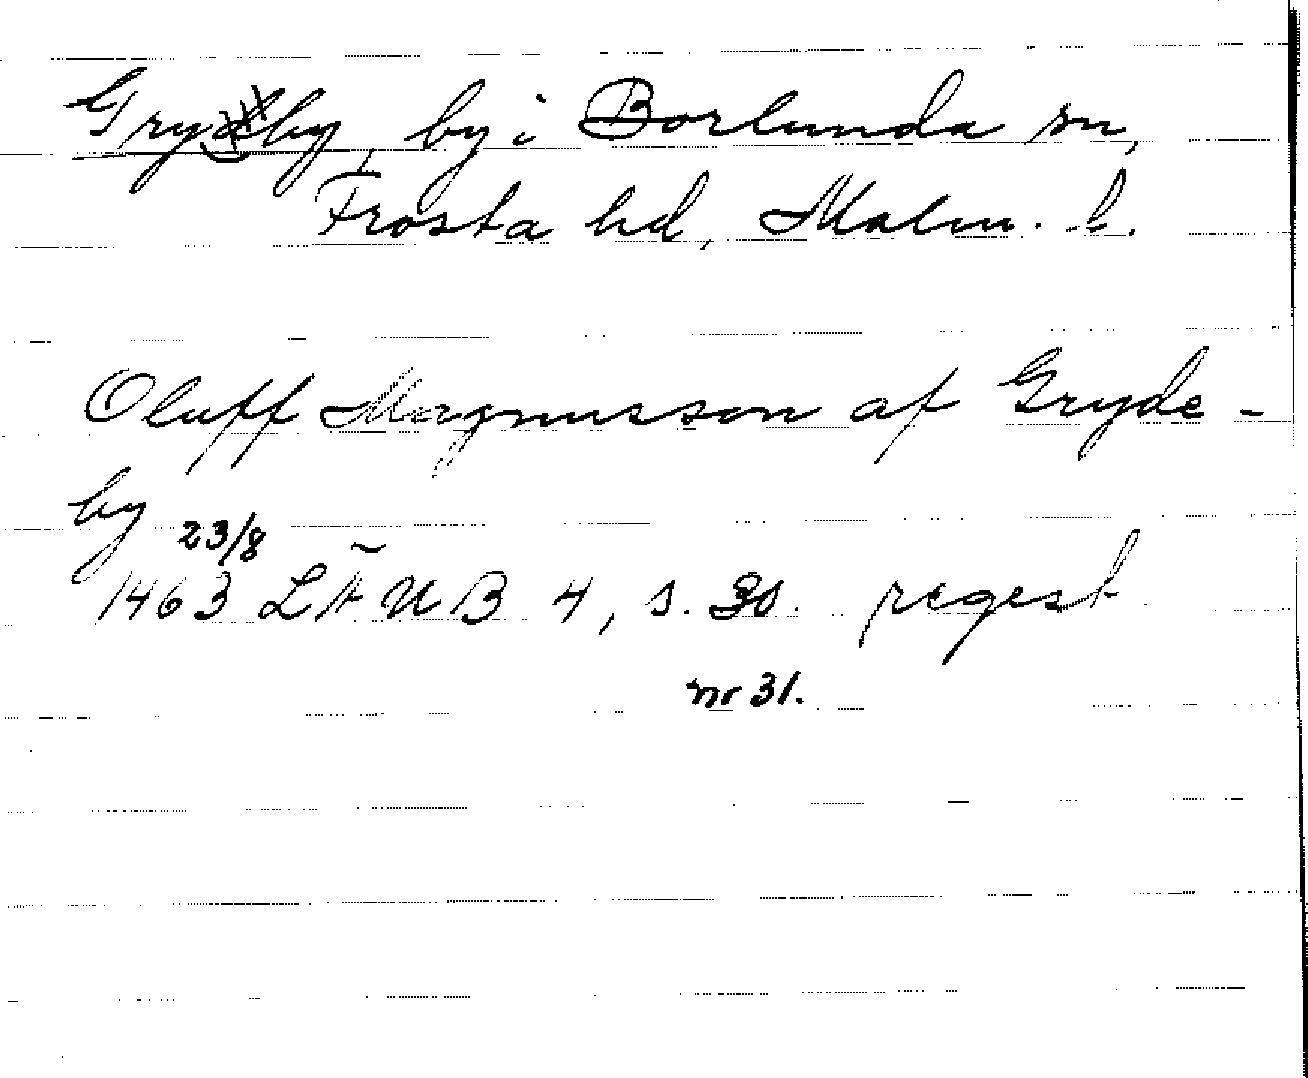 Gryby, by i Borlunda sn,
Frosta hd, Malm. l.
Oluff Magnusson af Gryde-
by
23/8
1463 LÄUB 4, s. 30. regest
nr 31.